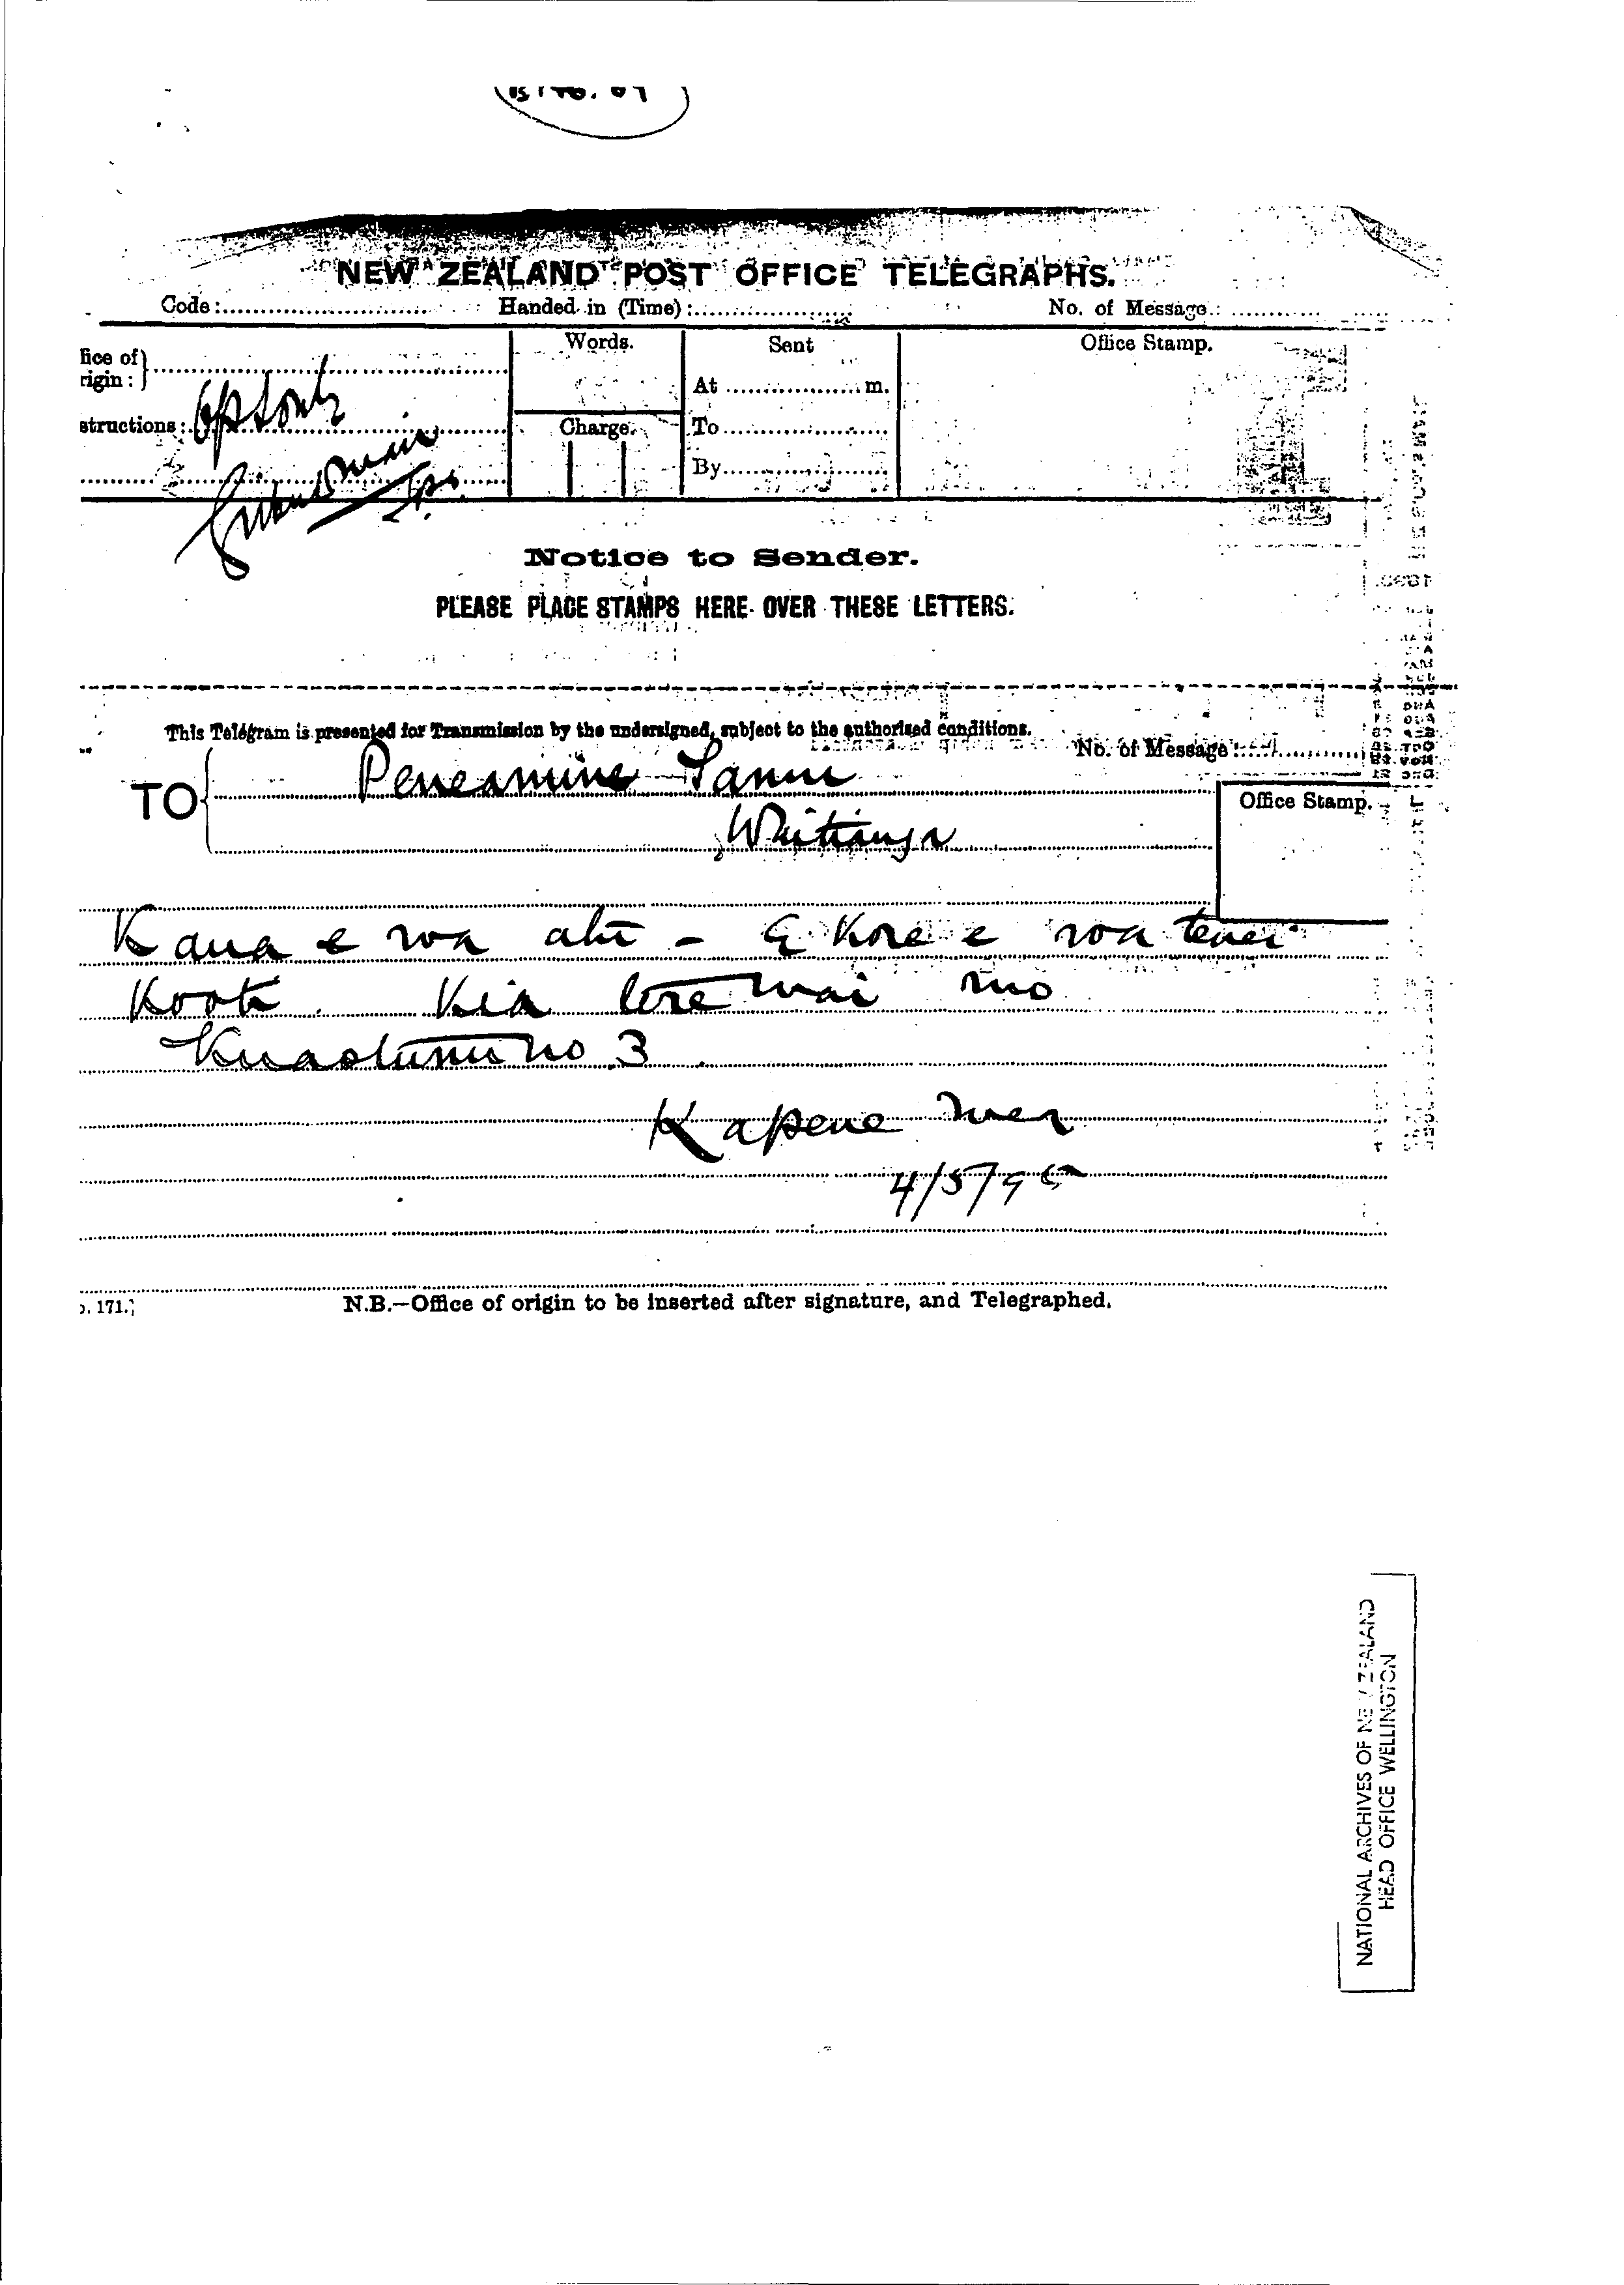 NEW ZEALAND POST OFFICE TELEGRAPHS.
Code: Handed in (Time): No. of Message:
fice of
rigin:
Words. Sent Office Stamp.
At m.
structions: Charge. To
By
Notice to Sender.
PLEASE PLACE STAMPS HERE OVER THESE LETTERS.
This Telegram is presented for Transmission by the undersigned, subject to the authorised conditions.
No. of Message
TO Peneamine Tanui
Whitianga
Office Stamp.
Kaua e roa atu - E kore e roa tenei
Kooti. Kia tere mai mo
Kuaotunu no 3
Kapene
4/5/96
. 171.]
N.B.—Office of origin to be inserted after signature, and Telegraphed.
NATIONAL ARCHIVES OF NEW ZEALAND
HEAD OFFICE WELLINGTON